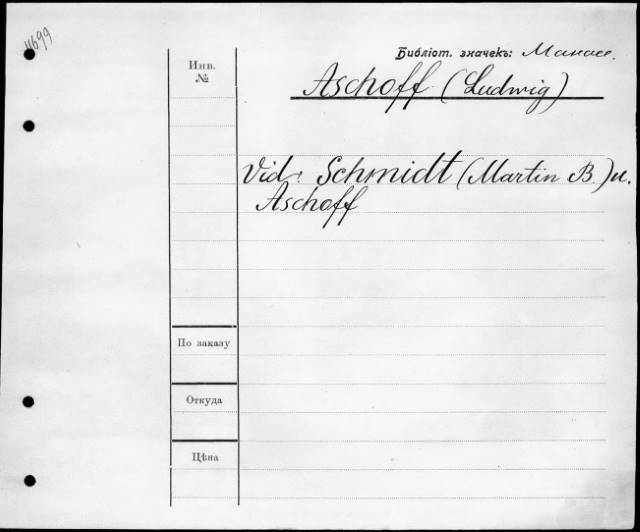 11699
Библіот. значекъ:
Aschoff (Ludwig)
Инв.
№
Vid. Schmidt (Martin B.) u.
Aschoff
По заказу
Откуда
Цѣна